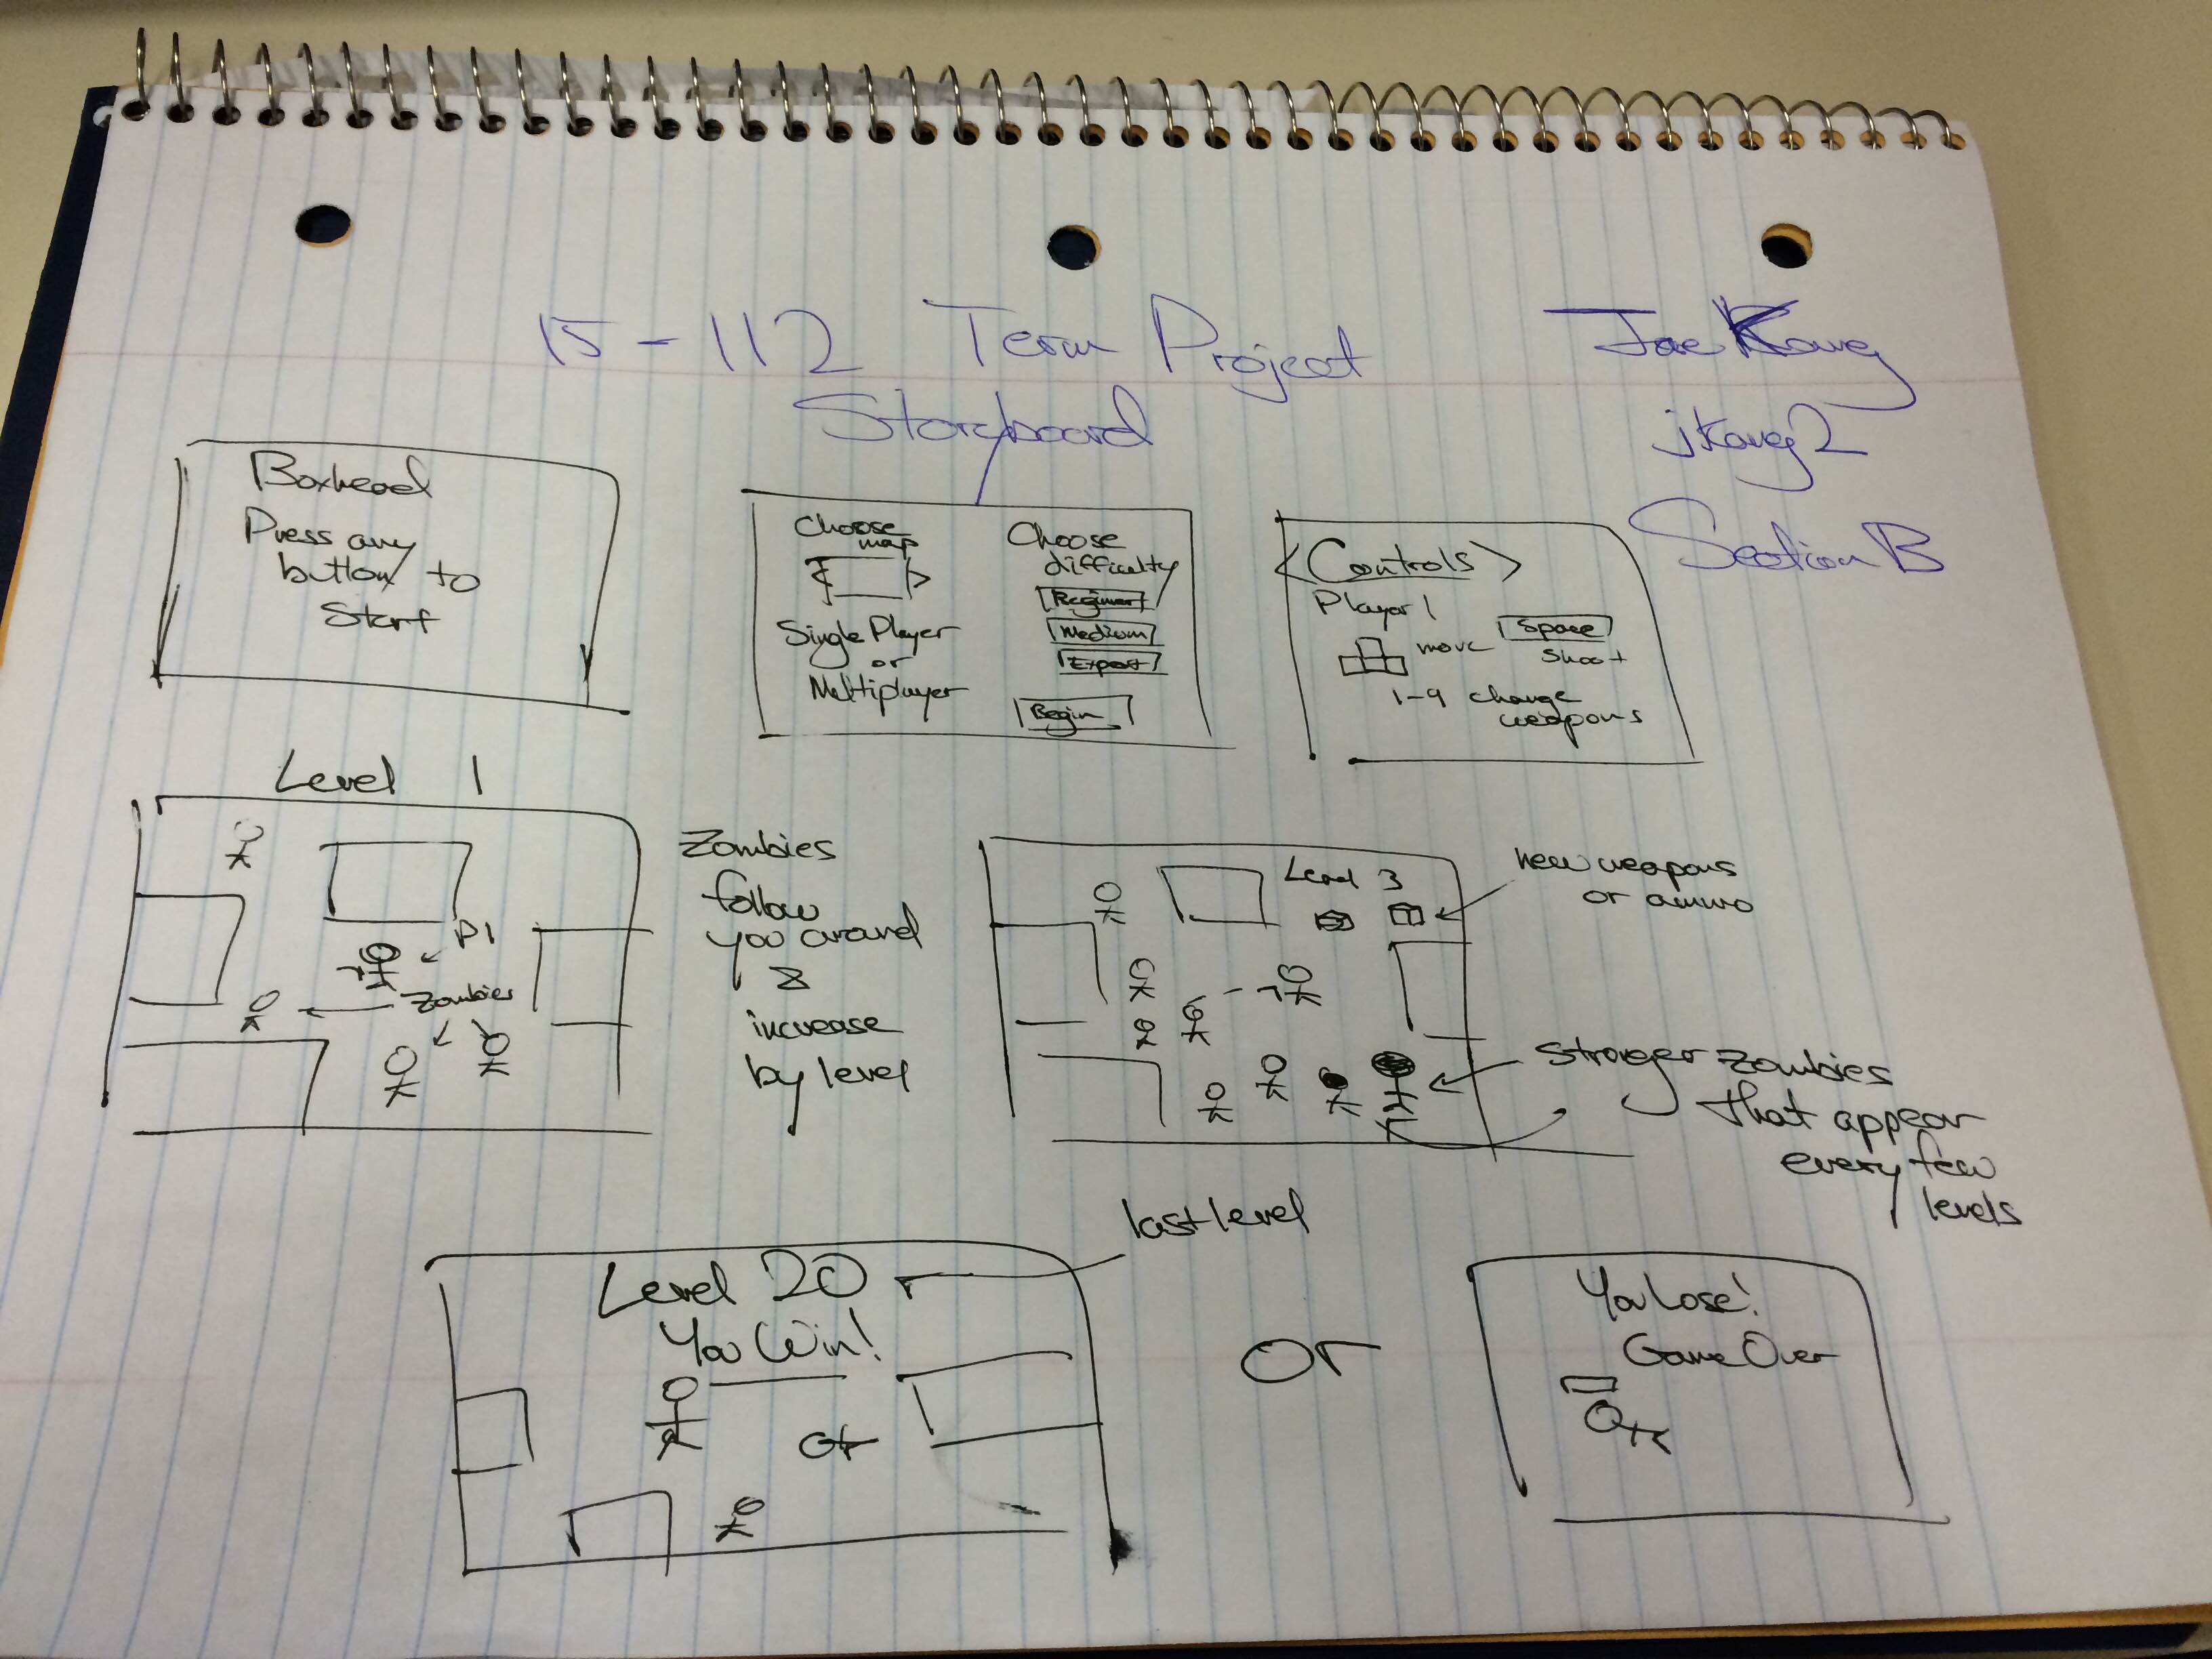 15-112 Term Project
Storyboard
Jae Kang
jkang2
Section B
Boxhead
Press any
button to
Start
Choose
map
Single Player
or
Multiplayer
Choose
difficulty
Beginner
Medium
Expert
Begin
<Controls>
Player 1
move
Space
Shoot
1-9 change
weapons
Level 1
P1
Zombies
Zombies
follow
you around
&
increase
by level
Level 3
new weapons
or ammo
Stronger Zombies
that appear
every few
levels
last level
Level 20
You Win!
or
or
You Lose!
Game Over